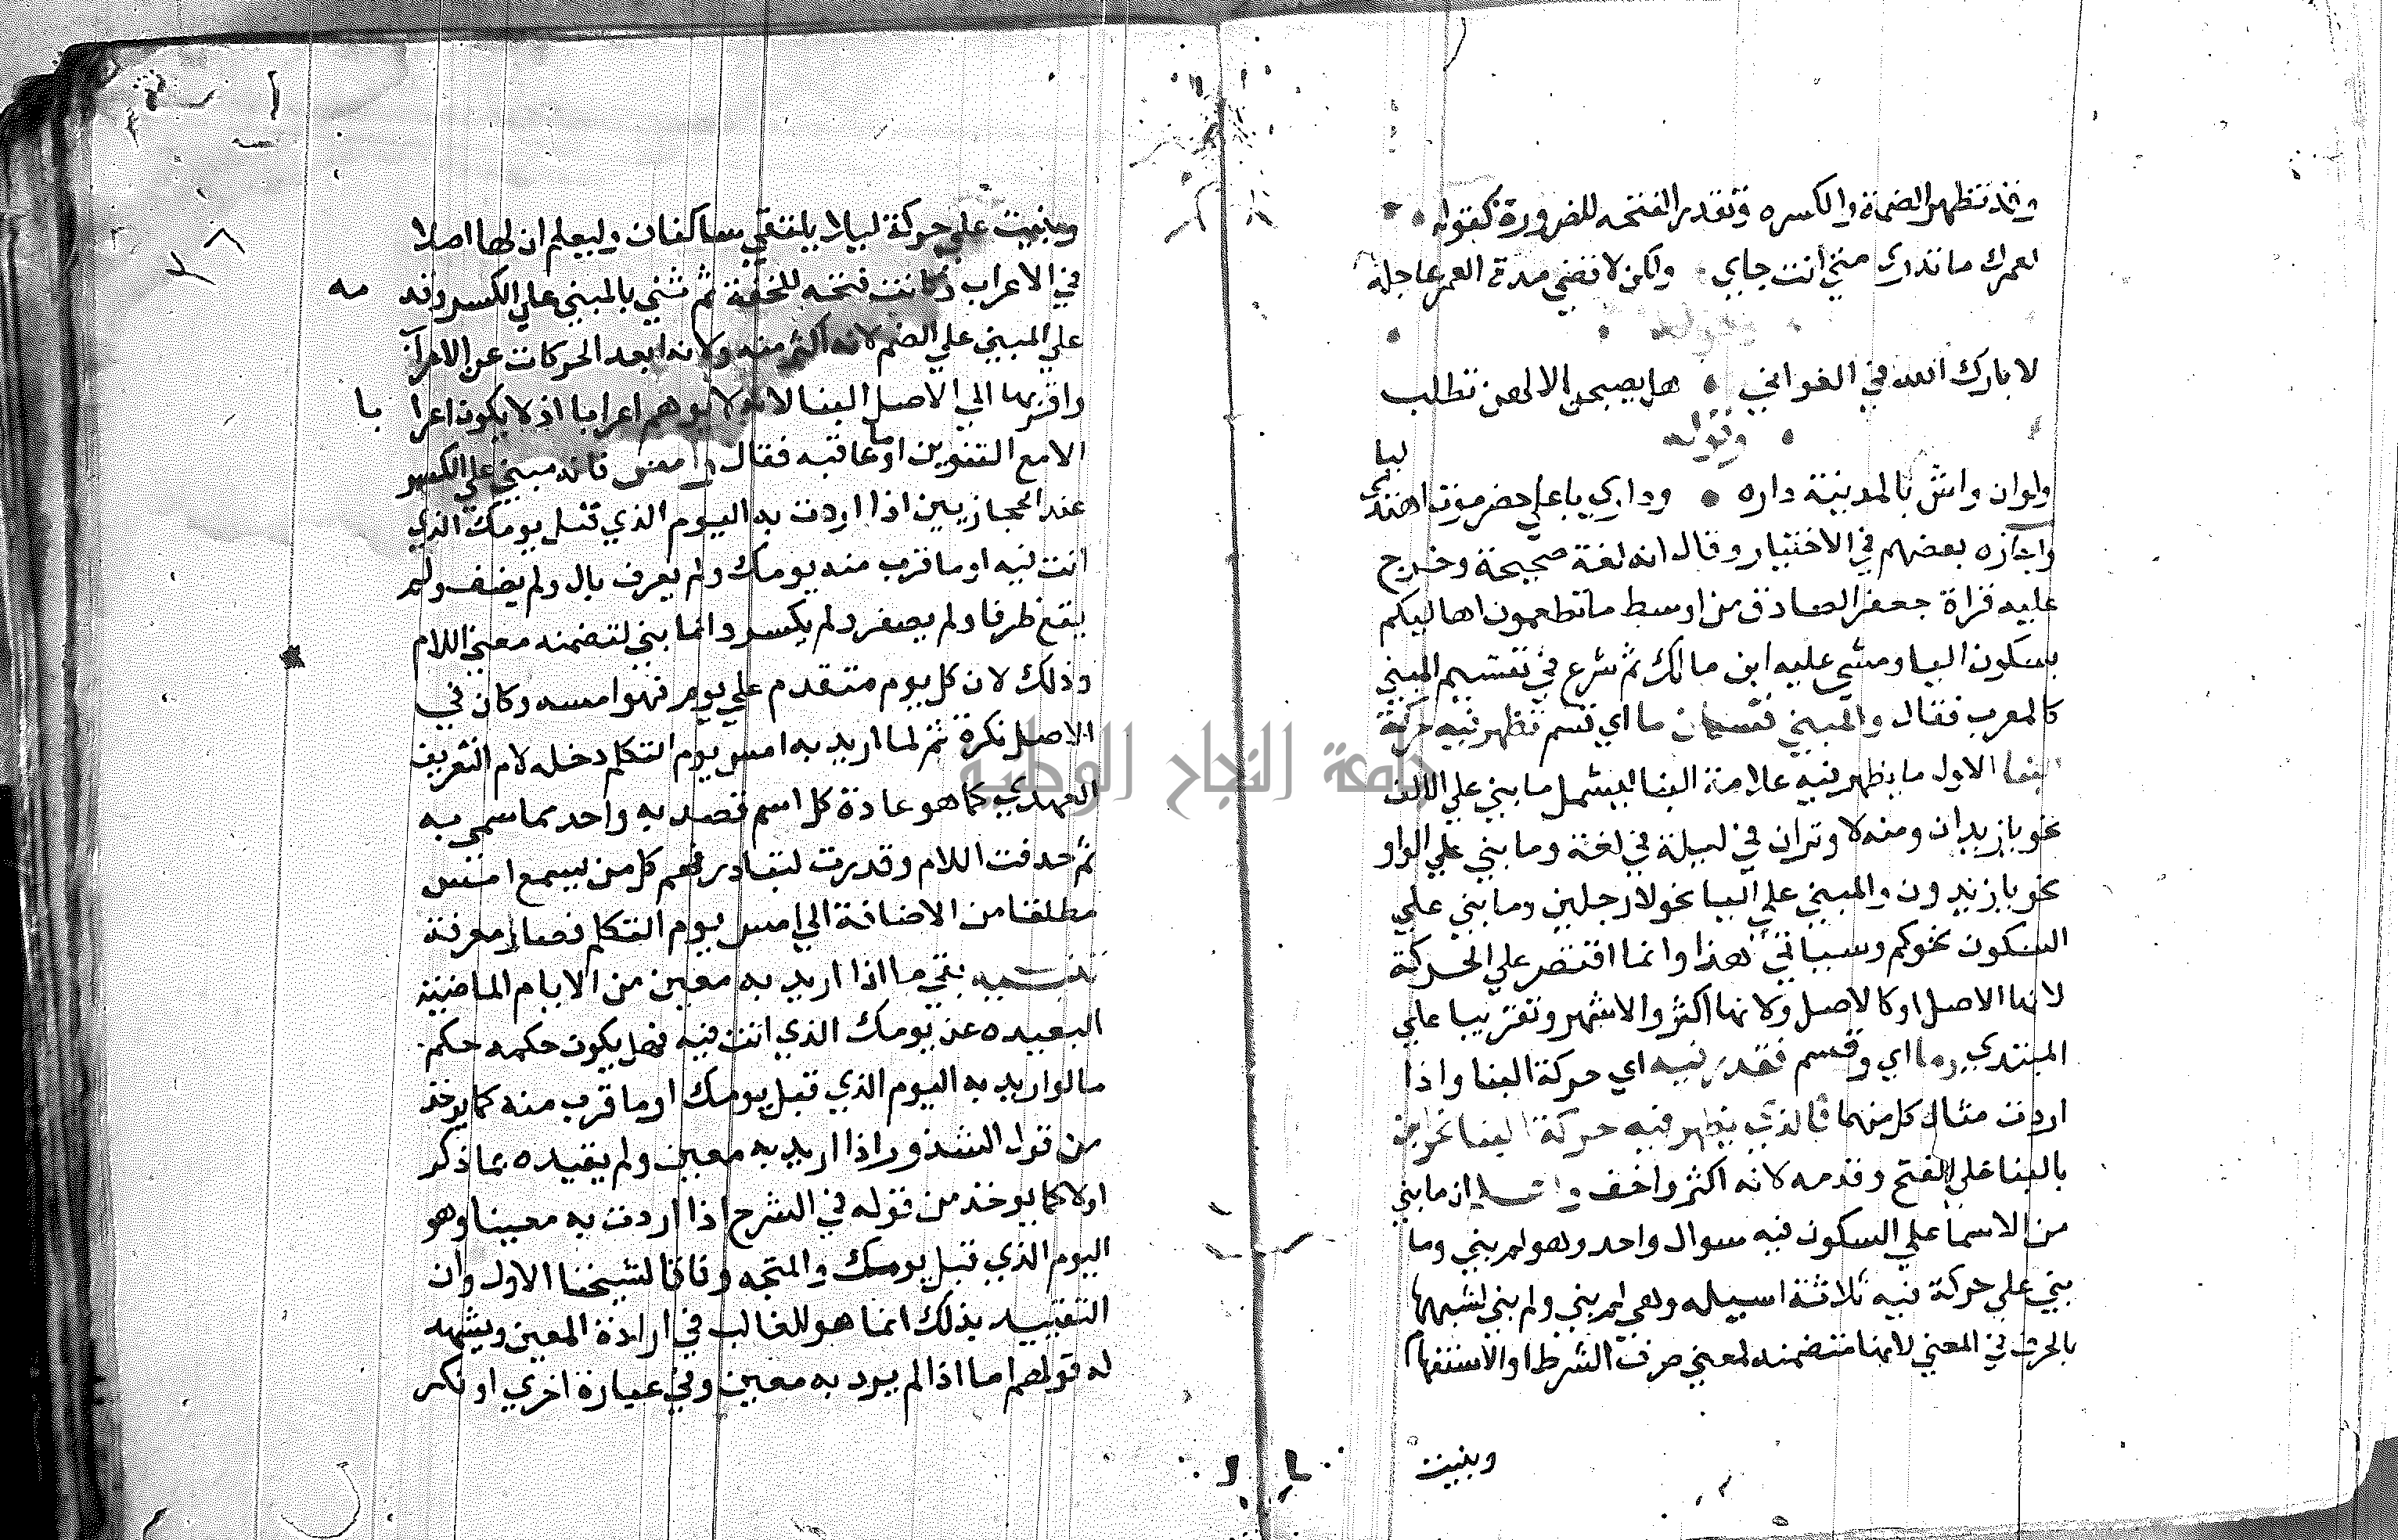 وقد تظهر الضمة والكسره وتقدر الفتحه للضرورة كقوله
لعمرك ما تدري متي انت جاي ولكن لا قضي مدة العمر عاجله
وقوله
لا بارك الله في الغواني هل يصبحن الا لهن تطلب
وقوله
ولو ان واش بالمدينة داره وداري باعلي حضرموت اهتدي
ليا
واجازه بعضهم في الاختيار وقال انه لغة صحيحة وخرج
عليه قراة جعفر الصادق من اوسط ما تطعمون اهاليكم
بسكون اليا ومشي عليه ابن مالك ثم شرع في تقسيم المبني
كالمعرب فقال والمبني قسمان ما اي قسم تظهر فيه حركة
البنا الاول ما يظهر فيه علامة البنا ليشمل ما بني علي الالف
نحو يا زيدان ومنه لا وتران في ليلة في لغة وما بني علي الواو
نحو يا زيدون والمبني علي اليا نحو لا رجلين وما بني علي
السكون نحو كم وسياتي هذا وانما اقتصر علي الحركة
لانها الاصل او كالاصل ولانها اكثر والاشهر وتقريبا علي
المبتدي وما اي وقسم تقدر فيه اي حركة البنا واذا
اردت مثال كل منهما فالذي يظهر فيه حركة البنا نحو اين
بالبنا علي الفتح وقدمه لانه اكثر واخف ان ما بني
من الاسما علي السكون فيه سوال واحد وهو لم بني وما
بني علي حركة فيه ثلاثة اسيله وهي لم بني ولم بني لشبهها
بالحرف في المعني لانها متضمنه لمعني حرف الشرط او الاستفهام
وبنيت
وبنيت علي حركة ليلا يلتقي ساكنان وليعلم ان لها اصلا
في الاعراب وكانت فتحه للخفة ثم ثني بالمبني علي الكسر وقد مه
علي المبني علي الضم لانه اكثر منه ولانه ابعد الحركات عن الاعراب
واقربها الي الاصل البنا لانه لا يوهم اعرابا اذ لا يكون اعرا با
الا مع التنوين او ما عاقبه فقال وامس فانه مبني علي الكسر
عند الحجازيين اذا اردت به اليوم الذي قبل يومك الذي
انت فيه او ما قرب منه يومك ولم يعرف بال ولم يضف ولم
يقع ظرفا ولم يصغر ولم يكسر وانما بني لتضمنه معني اللام
وذلك لان كل يوم متقدم علي يوم فهو امسه وكان في
الاصل نكرة ثم لما اريد به امس يوم التكلم دخله لام التعريف
العهدي كما هو عادة كل اسم قصد به واحد مما سمي به
ثم حذفت اللام وقدرت لتبادر فهم كل من يسمع امس
مطلقا من الاضافة الي امس يوم التكلم فصار معرفة
تنبيه بقي ما اذا اريد به معين من الايام الماضية
البعيده عن يومك الذي انت فيه فهل يكون حكمه حكم
ما لو اريد به اليوم الذي قبل يومك او ما قرب منه كما يوخذ
من قول الشذور اذا اريد به معين ولم يقيده بما ذكر
اولا كما يوخذ من قوله في الشرح اذا اردت به معينا وهو
اليوم الذي قبل يومك والمتجه وفاقا لشيخنا الاول وان
التقييد بذلك انما هو للغالب في ارادة المعين ويشهد
له قولهم اما اذا لم يرد به معين وفي عبارة اخري او نكر
جامعة النجاح الوطنية